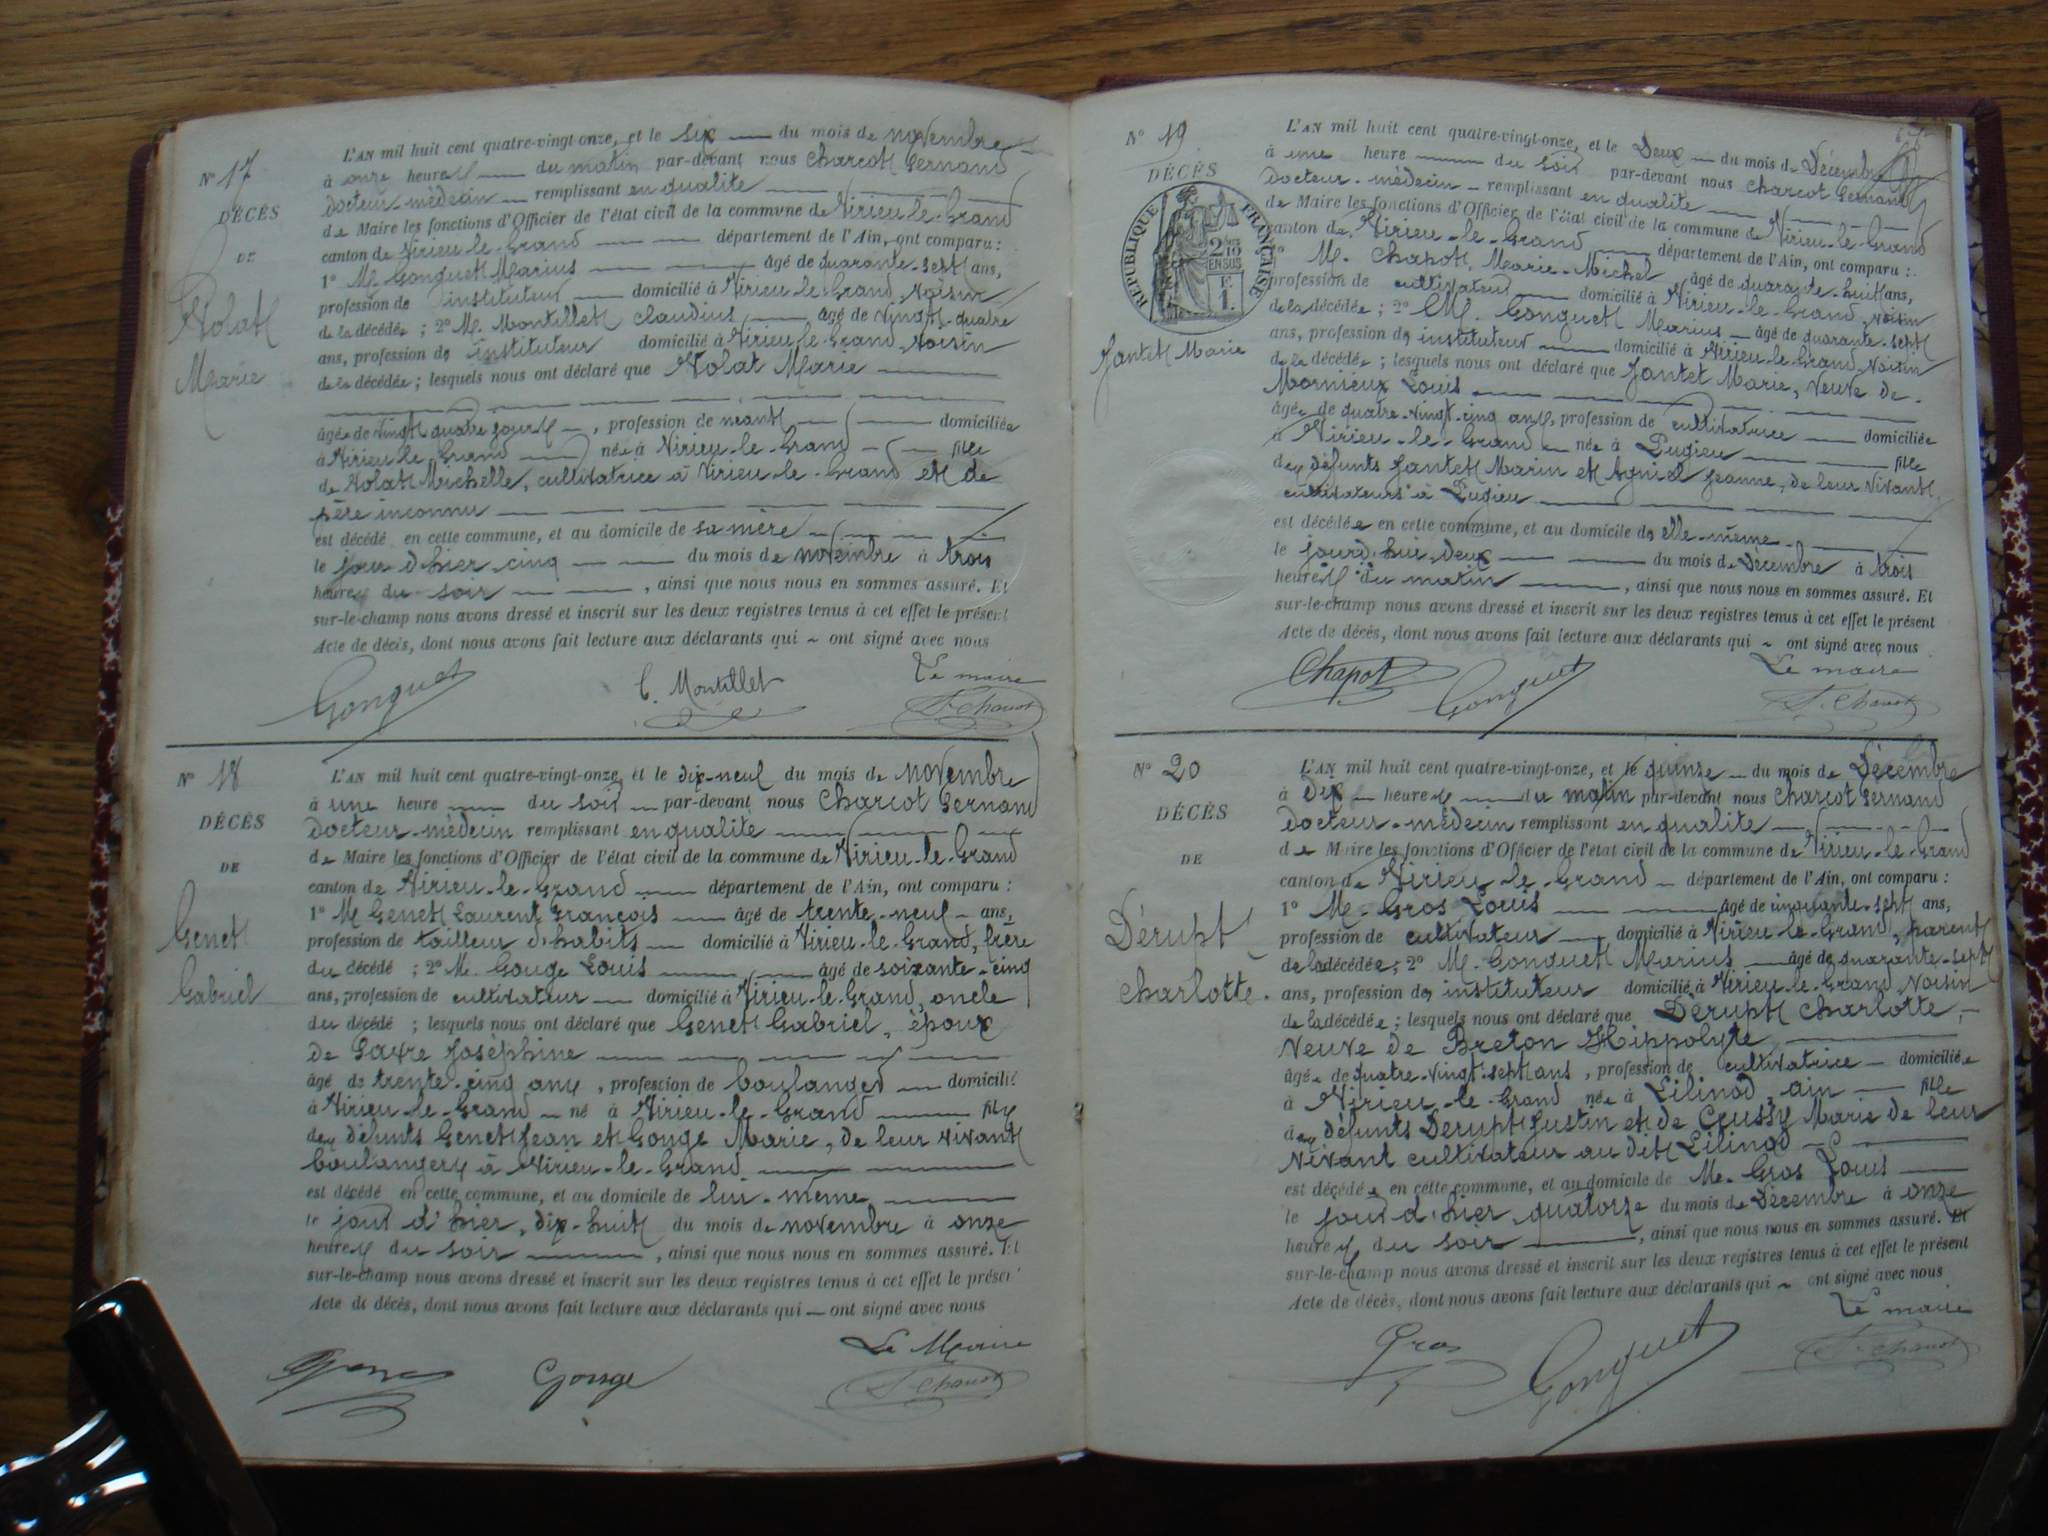 N° 17
DÉCÈS
DE
Volat
Marie
L'AN mil huit cent quatre-vingt-onze, et le six du mois de novembre
à onze heures du matin par-devant nous Charcot Fernand
Docteur-médecin remplissant en qualité
de Maire les fonctions d'Officier de l'état civil de la commune de Virieu-le-Grand
canton de Virieu-le-Grand département de l'Ain, ont comparu :
1° M. Gonguet Marius âgé de quarante-sept ans,
profession de instituteur domicilié à Virieu-le-Grand, voisin
de la décédée ; 2° M. Montillet Claudius âgé de vingt-quatre
ans, profession de instituteur domicilié à Virieu-le-Grand, voisin
de la décédée ; lesquels nous ont déclaré que Volat Marie
âgée de vingt quatre jours, profession de néant domiciliée
à Virieu-le-Grand née à Virieu-le-Grand fille
de Volat Michelle, cultivatrice à Virieu-le-Grand et de
père inconnu
est décédé en cette commune, et au domicile de sa mère
le jour d'hier cinq du mois de novembre à trois
heures du soir, ainsi que nous nous en sommes assuré. Et
sur-le-champ nous avons dressé et inscrit sur les deux registres tenus à cet effet le présent
Acte de décès, dont nous avons fait lecture aux déclarants qui ~ ont signé avec nous
Gonguet C. Montillet Le maire
F. Charcot
N° 18
DÉCÈS
DE
Genet
Gabriel
L'AN mil huit cent quatre-vingt-onze, et le dix-neuf du mois de novembre
à une heure du soir par-devant nous Charcot Fernand
Docteur-médecin remplissant en qualité
de Maire les fonctions d'Officier de l'état civil de la commune de Virieu-le-Grand
canton de Virieu-le-Grand département de l'Ain, ont comparu :
1° M. Genet Laurent François âgé de trente-neuf ans,
profession de tailleur d'habits domicilié à Virieu-le-Grand, frère
du décédé ; 2° M. Gouge Louis âgé de soixante-cinq
ans, profession de cultivateur domicilié à Virieu-le-Grand, oncle
du décédé ; lesquels nous ont déclaré que Genet Gabriel, époux
de Joséphine
âgé de trente-cinq ans, profession de boulanger domicilié
à Virieu-le-Grand né à Virieu-le-Grand fils
des défunts Genet Jean et Gouge Marie, de leur vivant
boulangers à Virieu-le-Grand
est décédé en cette commune, et au domicile de lui-même
le jour d'hier, dix-huit du mois de novembre à onze
heures du soir, ainsi que nous nous en sommes assuré. Et
sur-le-champ nous avons dressé et inscrit sur les deux registres tenus à cet effet le présent
Acte de décès, dont nous avons fait lecture aux déclarants qui — ont signé avec nous
Le Maire
Genet Gouge F. Charcot
N° 19
DÉCÈS
RÉPUBLIQUE FRANÇAISE
2 10
EN SUS
E
1.
Jantet Marie
L'AN mil huit cent quatre-vingt-onze, et le Deux du mois de Décembre
à une heure du soir par-devant nous Charcot Fernand
Docteur-médecin remplissant en qualité
de Maire les fonctions d'Officier de l'état civil de la commune de Virieu-le-Grand
canton de Virieu-le-Grand département de l'Ain, ont comparu :
1° M. Chapot, Marie-Michel âgé de quarante-huit ans,
profession de cultivateur domicilié à Virieu-le-Grand, voisin
de la décédée ; 2° M. Gonguet Marius âgé de quarante-sept
ans, profession de instituteur domicilié à Virieu-le-Grand, voisin
de la décédée ; lesquels nous ont déclaré que Jantet Marie, veuve de
Mornieux Louis
âgée de quatre-vingt-cinq ans, profession de cultivatrice domiciliée
à Virieu-le-Grand née à Pugieu fille
des défunts Jantet Marin et Jeanne, de leur vivant
cultivateurs à Pugieu
est décédée en cette commune, et au domicile de elle-même
le jourd'hui deux du mois de Décembre à trois
heures du matin, ainsi que nous nous en sommes assuré. Et
sur-le-champ nous avons dressé et inscrit sur les deux registres tenus à cet effet le présent
Acte de décès, dont nous avons fait lecture aux déclarants qui ~ ont signé avec nous
Chapot Gonguet Le maire
F. Charcot
N° 20
DÉCÈS
DE
Dérupt
Charlotte.
L'AN mil huit cent quatre-vingt-onze, et le quinze du mois de Décembre
à Dix heures du matin par-devant nous Charcot Fernand
Docteur-médecin remplissant en qualité
de Maire les fonctions d'Officier de l'état civil de la commune de Virieu-le-Grand
canton de Virieu-le-Grand département de l'Ain, ont comparu :
1° M. Gros Louis âgé de cinquante-sept ans,
profession de cultivateur domicilié à Virieu-le-Grand, parent
de la décédée ; 2° M. Gonguet Marius âgé de quarante-sept
ans, profession de instituteur domicilié à Virieu-le-Grand, voisin
de la décédée ; lesquels nous ont déclaré que Dérupt Charlotte,
veuve de Breton Hippolyte
âgée de quatre-vingt-sept ans, profession de cultivatrice domiciliée
à Virieu-le-Grand née à Lilinod, ain fille
des défunts Derupt Justin et de Marie de leur
vivant cultivateur au dit Lilinod
est décédée en cette commune, et au domicile de M. Gros Louis
le jour d'hier quatorze du mois de Décembre à onze
heures du soir, ainsi que nous nous en sommes assuré. Et
sur-le-champ nous avons dressé et inscrit sur les deux registres tenus à cet effet le présent
Acte de décès, dont nous avons fait lecture aux déclarants qui ~ ont signé avec nous
Le maire
Gros Gonguet F. Charcot